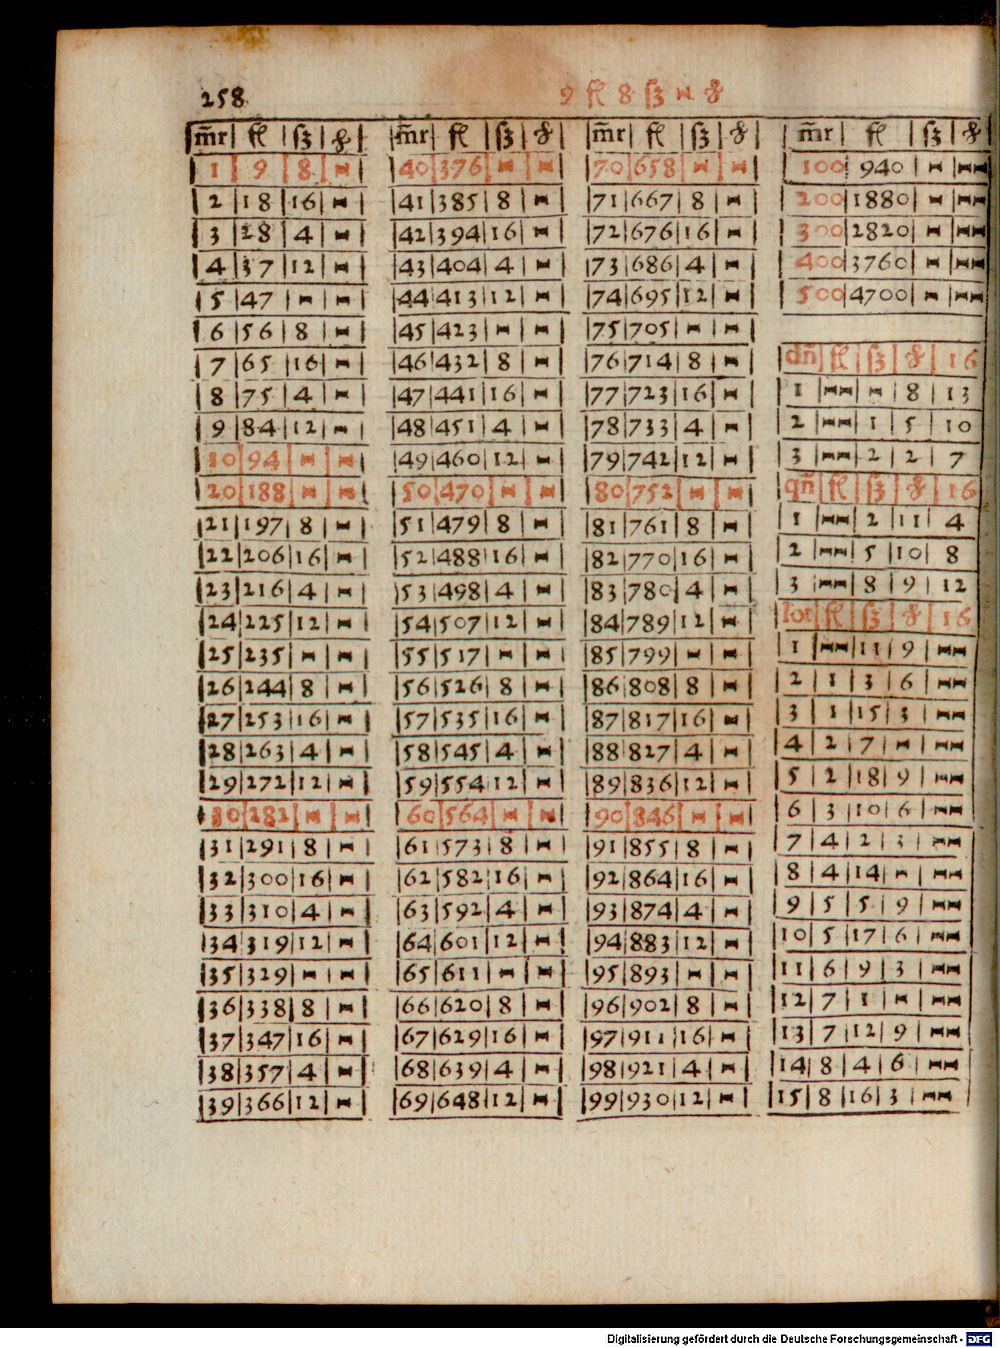 258
9 fl 8 ß - ₰
m̄r fl ß ₰
1 9 8 -
2 18 16 -
3 28 4 -
4 37 12 -
5 47 - -
6 56 8 -
7 65 16 -
8 75 4 -
9 84 12 -
10 94 - -
20 188 - -
21 197 8 -
22 206 16 -
23 216 4 -
24 225 12 -
25 235 - -
26 244 8 -
27 253 16 -
28 263 4 -
29 272 12 -
30 282 - -
31 291 8 -
32 300 16 -
33 310 4 -
34 319 12 -
35 329 - -
36 338 8 -
37 347 16 -
38 357 4 -
39 366 12 -
m̄r fl ß ₰
40 376 - -
41 385 8 -
42 394 16 -
43 404 4 -
44 413 12 -
45 423 - -
46 432 8 -
47 441 16 -
48 451 4 -
49 460 12 -
50 470 - -
51 479 8 -
52 488 16 -
53 498 4 -
54 507 12 -
55 517 - -
56 526 8 -
57 535 16 -
58 545 4 -
59 554 12 -
60 564 - -
61 573 8 -
62 582 16 -
63 592 4 -
64 601 12 -
65 611 - -
66 620 8 -
67 629 16 -
68 639 4 -
69 648 12 -
m̄r fl ß ₰
70 658 - -
71 667 8 -
72 676 16 -
73 686 4 -
74 695 12 -
75 705 - -
76 714 8 -
77 723 16 -
78 733 4 -
79 742 12 -
80 752 - -
81 761 8 -
82 770 16 -
83 780 4 -
84 789 12 -
85 799 - -
86 808 8 -
87 817 16 -
88 827 4 -
89 836 12 -
90 846 - -
91 855 8 -
92 864 16 -
93 874 4 -
94 883 12 -
95 893 - -
96 902 8 -
97 911 16 -
98 921 4 -
99 930 12 -
m̄r fl ß ₰
100 940 - --
200 1880 - --
300 2820 - --
400 3760 - --
500 4700 - --
dn̄ fl ß ₰ 16
1 -- - 8 13
2 -- 1 5 10
3 -- 2 2 7
qn̄ fl ß ₰ 16
1 -- 2 11 4
2 -- 5 10 8
3 -- 8 9 12
lot fl ß ₰ 16
1 -- 11 9 --
2 1 3 6 --
3 1 15 3 --
4 2 7 - --
5 2 18 9 --
6 3 10 6 --
7 4 2 3 --
8 4 14 - --
9 5 5 9 --
10 5 17 6 --
11 6 9 3 --
12 7 1 - --
13 7 12 9 --
14 8 4 6 --
15 8 16 3 --
Digitalisierung gefördert durch die Deutsche Forschungsgemeinschaft - DFG